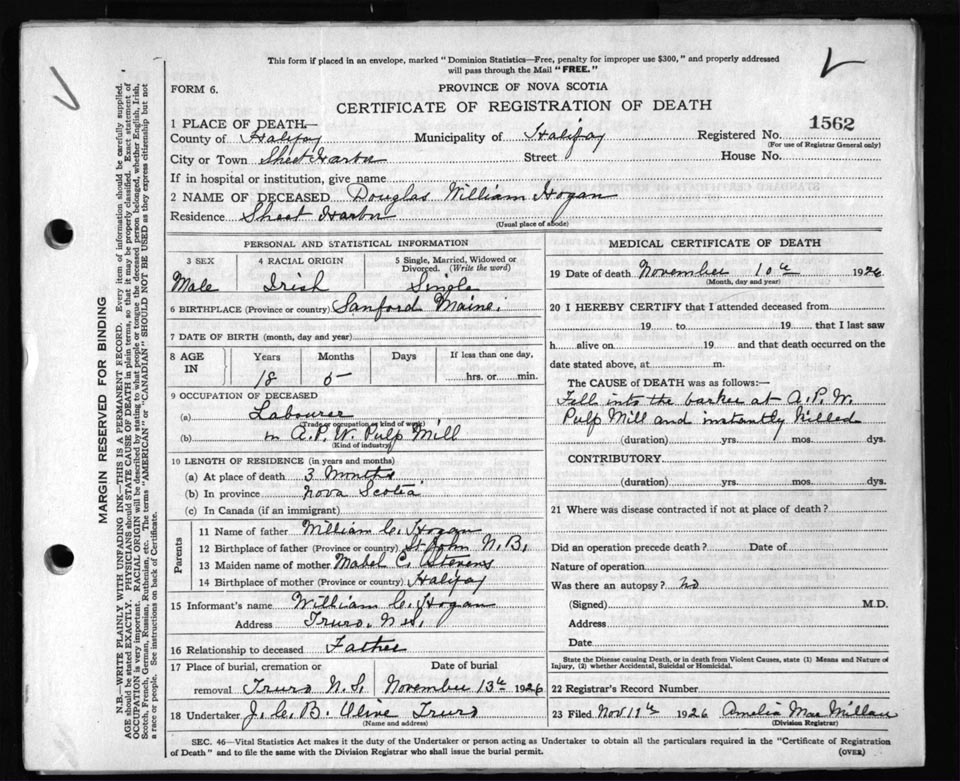 This form if placed in an envelope, marked "Dominion Statistics—Free, penalty for improper use $300," and properly addressed
will pass through the Mail "FREE."
FORM 6.
PROVINCE OF NOVA SCOTIA
CERTIFICATE OF REGISTRATION OF DEATH
1 PLACE OF DEATH—
County of Halifax Municipality of Halifax Registered No. 1562
(For use of Registrar General only)
City or Town Sheet Harbor Street House No.
If in hospital or institution, give name
2 NAME OF DECEASED Douglas William Hogan
Residence Sheet Harbor
(Usual place of abode)
PERSONAL AND STATISTICAL INFORMATION
3 SEX 4 RACIAL ORIGIN 5 Single, Married, Widowed or
Divorced. (Write the word)
Male Irish Single
6 BIRTHPLACE (Province or country) Sanford Maine.
7 DATE OF BIRTH (month, day and year)
8 AGE IN Years Months Days If less than one day,
18 5 hrs. or min.
9 OCCUPATION OF DECEASED
(a) Labourer
(Trade or occupation or kind of work)
(b) in A.P.W. Pulp Mill
(Kind of industry)
10 LENGTH OF RESIDENCE (in years and months)
(a) At place of death 3 Months
(b) In province Nova Scotia
(c) In Canada (if an immigrant)
Parents
11 Name of father William C. Hogan
12 Birthplace of father (Province or country) St John N.B.
13 Maiden name of mother Mabel C. Stevens
14 Birthplace of mother (Province or country) Halifax
15 Informant's name William C. Hogan
Address Truro, N.S.
16 Relationship to deceased Father
17 Place of burial, cremation or Date of burial
removal Truro N.S. November 13th 1926
18 Undertaker J. C. B. Olive Truro
(Name and address)
MEDICAL CERTIFICATE OF DEATH
19 Date of death November 10th 1926
(Month, day and year)
20 I HEREBY CERTIFY that I attended deceased from
19 to 19 that I last saw
h alive on 19 and that death occurred on the
date stated above, at m.
The CAUSE of DEATH was as follows:—
Fell into the barker at A.P.W.
Pulp Mill and instantly killed
(duration) yrs. mos. dys.
CONTRIBUTORY
(duration) yrs. mos. dys.
21 Where was disease contracted if not at place of death?
Did an operation precede death? Date of
Nature of operation
Was there an autopsy? no
(Signed) M.D.
Address
Date
State the Disease causing Death, or in death from Violent Causes, state (1) Means and Nature of
Injury, (2) whether Accidental, Suicidal or Homicidal.
22 Registrar's Record Number
23 Filed Nov 17th 1926 Amelia MacMillan
(Division Registrar)
SEC. 46—Vital Statistics Act makes it the duty of the Undertaker or person acting as Undertaker to obtain all the particulars required in the "Certificate of Registration
of Death" and to file the same with the Division Registrar who shall issue the burial permit. (OVER)
MARGIN RESERVED FOR BINDING
N.B.—WRITE PLAINLY WITH UNFADING INK—THIS IS A PERMANENT RECORD. Every item of information should be carefully supplied.
AGE should be stated EXACTLY. PHYSICIANS should STATE CAUSE OF DEATH in plain terms, so that it may be properly classified. Exact statement of
OCCUPATION is very important. RACIAL ORIGIN will be described by stating to what people or tongue the deceased person belonged, whether English, Irish,
Scotch, French, German, Russian, Ruthenian, etc. The terms "AMERICAN" or "CANADIAN" SHOULD NOT BE USED as they express citizenship but not
a race or people. See instructions on back of Certificate.